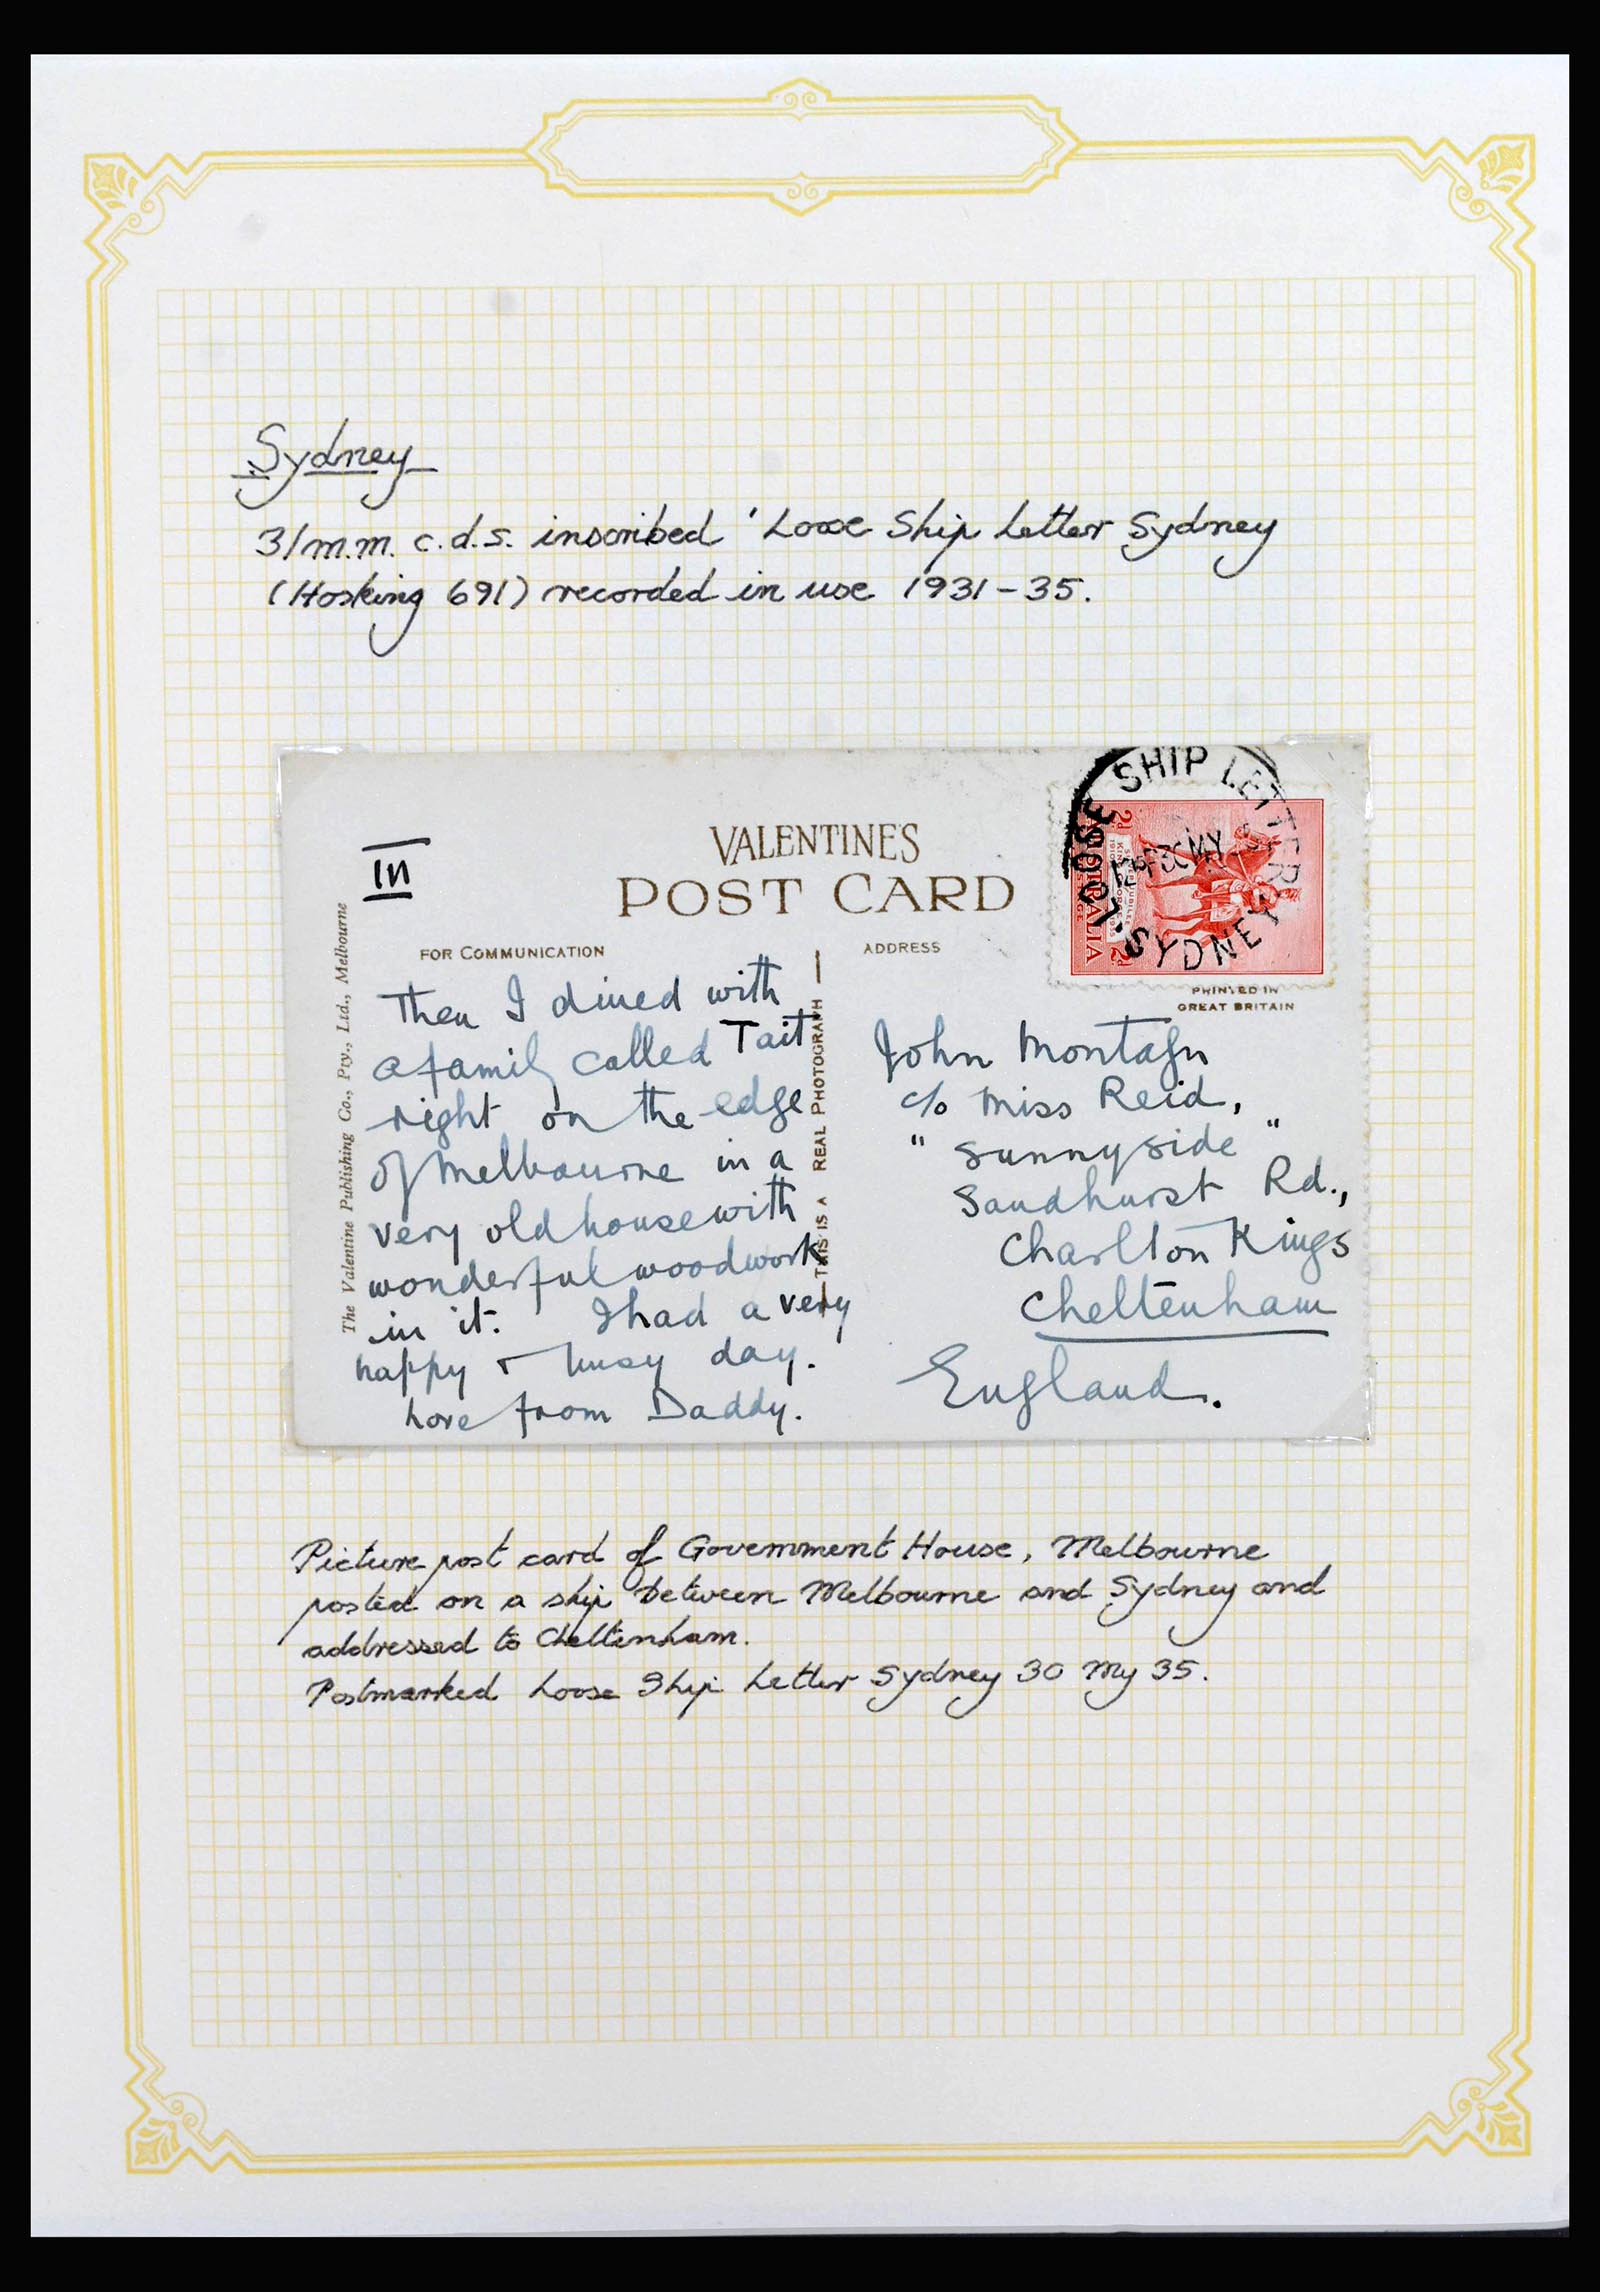 Sydney
31 m.m. c.d.s. inscribed 'Loose Ship Letter Sydney
(Hosking 691) recorded in use 1931-35.
III
VALENTINE'S
POST CARD
FOR COMMUNICATION
ADDRESS
The Valentine Publishing Co., Pty., Ltd., Melbourne
THIS IS A REAL PHOTOGRAPH
LOOSE SHIP LETTER
SYDNEY
2d
AUSTRALIA
2d
PRINTED IN
GREAT BRITAIN
Then I dined with
a family called Tait
right on the edge
of Melbourne in a
very old house with
wonderful woodwork
in it. I had a very
happy & busy day.
Love from Daddy.
John Montagu
c/o Miss Reid,
"Sunnyside"
Sandhurst Rd.,
Charlton Kings
Cheltenham
England.
Picture post card of Government House, Melbourne
posted on a ship between Melbourne and Sydney and
addressed to Cheltenham.
Postmarked Loose Ship Letter Sydney 30 My 35.